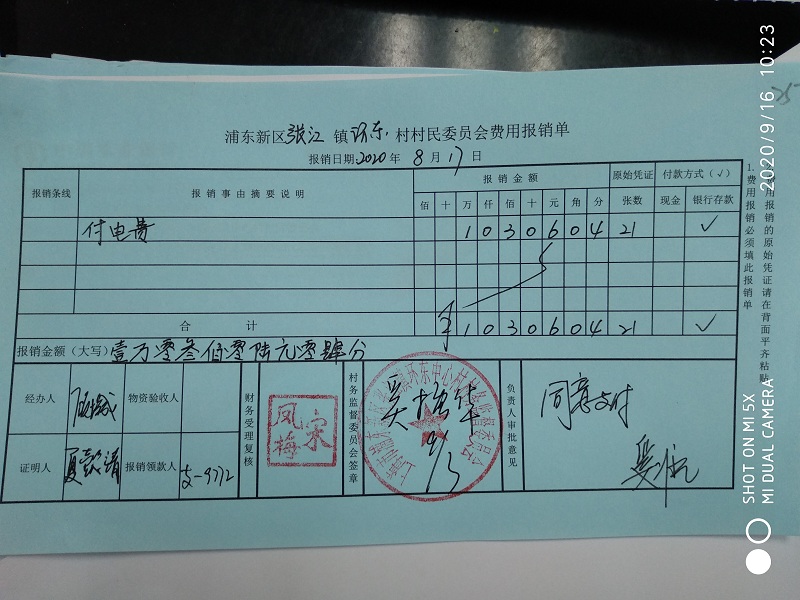 浦东新区张江 镇 环东 村村民委员会费用报销单
报销日期 2020 年 8 月 17 日
报销条线 报销事由摘要说明 报销金额 原始凭证 付款方式(√)
佰 十 万 仟 佰 十 元 角 分 张数 现金 银行存款
付电费 1 0 3 0 6 0 4 21 √
合计 ¥ 1 0 3 0 6 0 4 21 √
报销金额(大写) 壹万零叁佰零陆元零肆分
经办人 物资验收人
证明人 报销领款人 支-9772
财务受理复核
宋凤梅
村务监督委员会签章
负责人审批意见
同意支付
1.费用报销必须填此报销单
费用报销的原始凭证请在背面平齐粘贴
2020/9/16 10:23
SHOT ON MI 5X
MI DUAL CAMERA